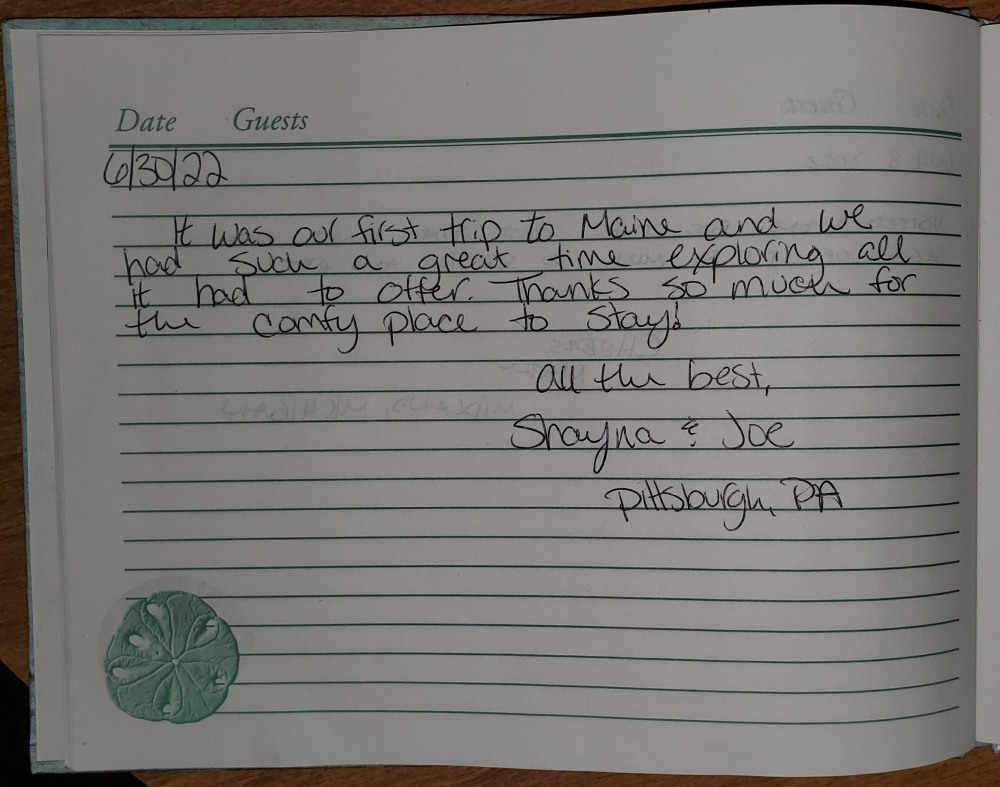 Date Guests
6/30/22
It was our first trip to Maine and we
had such a great time exploring all
it had to offer. Thanks so much for
the comfy place to stay!
all the best,
Shayna & Joe
Pittsburgh, PA